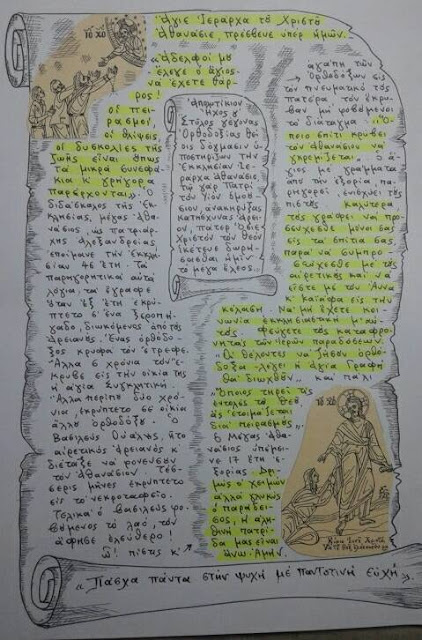 Ἅγιε Ἱεράρχα τοῦ Χριστοῦ
Ἀθανάσιε, πρέσβευε ὑπέρ ἡμῶν.
«Ἀδελφοί μου
ἔλεγε ὁ ἅγιος-
νά ἔχετε θάρ-
ρος!
οἱ πει-
ρασμοί,
οἱ θλίψεις,
οἱ δυσκολίες τῆς
ζωῆς εἶναι ὅπως
τά μικρά συννεφά-
κια κ' γρήγορα
παρέρχονται». Ὁ
διδάσκαλος τῆς Ἐκ-
κλησίας, μέγας Ἀθα-
νάσιος, ὡς πατριάρ-
χης Ἀλεξανδρείας,
ἐποίμανε τήν Ἐκκλη-
σίαν 46 ἔτη. Τά
παρηγορητικά αὐτά
λόγια, τά ἔγραφε
ὅταν ἕξ ἔτη ἐκρύ-
πτετο σ' ἕνα ξεροπή-
γαδο, διωκόμενος ἀπό τούς
Ἀρειανούς. Ἕνας ὀρθόδο-
ξος κρυφά τόν ἔτρεφε.
Ἄλλα 6 χρόνια τόν ἔ-
κρυβε εἰς τήν οἰκία της
ἡ ἁγία Συγκλητική.
Ἄλλα περίπου δύο χρό-
νια, ἐκρύπτετο σέ οἰκία
ἄλλου ὀρθοδόξου. Ὁ
βασιλεύς Οὐάλης, ἦτο
αἱρετικός ἀρειανός κ'
διέταξε νά φονεύσουν
τόν Ἀθανάσιον. Τέσ-
σερις μῆνες ἐκρύπτετο
εἰς τό νεκροταφεῖο.
Τελικά ὁ βασιλεύς φο-
βούμενος τό λαό, τόν
ἄφησε ἐλεύθερο!
Ὤ! πίστις κ'
Ἀπολυτίκιον
ἦχος γ'
Στῦλος γέγονας
Ὀρθοδοξίας θεί-
οις δόγμασιν ὑ-
ποστηρίζων τήν
Ἐκκλησίαν Ἱεράρχα
Ἀθανάσιε
τῷ γάρ Πατρί
τόν Υἱόν ὁμοού-
σιον, ἀνακηρύξας
κατῄσχυνας Ἄρει-
ον, πάτερ ὅσιε
Χριστόν τόν Θεόν
ἱκέτευε δωρή-
σασθαι ἡμῖν
τό μέγα ἔλεος.
ἀγάπη τῶν
Ὀρθοδόξων εἰς
τόν πνευματικό τους
πατέρα τόν ἔκρυ-
βαν μή φοβούμενοι
τό διάταγμα: «Ὅ-
ποιο σπίτι κρύβει
τόν Ἀθανάσιον νά
γκρεμίζεται». Ὁ ἅ-
γιος μέ γράμματα
ἀπό τήν ἐξορία πα-
ρηγορεῖ, ἐνισχύει τούς
πιστούς. Καλύτερα
τούς γράφει- νά προ-
σεύχεσθε μόνοι σας
εἰς τά σπίτια σας,
παρά νά συμπρο-
σεύχεσθε μέ τούς
αἱρετικούς καί νά
εἶστε μέ τόν Ἄννα
κ' Καϊάφα εἰς τήν
κόλαση. Νά μή ἔχετε κοι-
νωνία ἐκκλησιαστική μ' αὐ-
τούς. Φεύγετε τούς καταφρο-
νητάς τῶν Ἱερῶν παραδόσεων.
«Οἱ θέλοντες νά ζήσουν ὀρθό-
δοξα -λέγει ἡ ἁγία Γραφή
θά διωχθοῦν». καί πάλι
«Ὅποιος τηρεῖ τίς
ἐντολές τοῦ Θεοῦ
ἄς ἑτοιμάζεται
διά πειρασμούς».
Ὁ Μέγας Ἀθα-
νάσιος ὑπέμει-
νε 17 ἔτη ἐ-
ξορίας. Δρι-
μύς ὁ χειμών
ἀλλά γλυκύς
ὁ παράδει-
σος, ἡ ἀλη-
θινή πατρί-
δα μας εἶναι
ἄνω. Ἀμήν.
«Πάσχα πάντα στήν ψυχή μέ παντοτινή εὐχή».